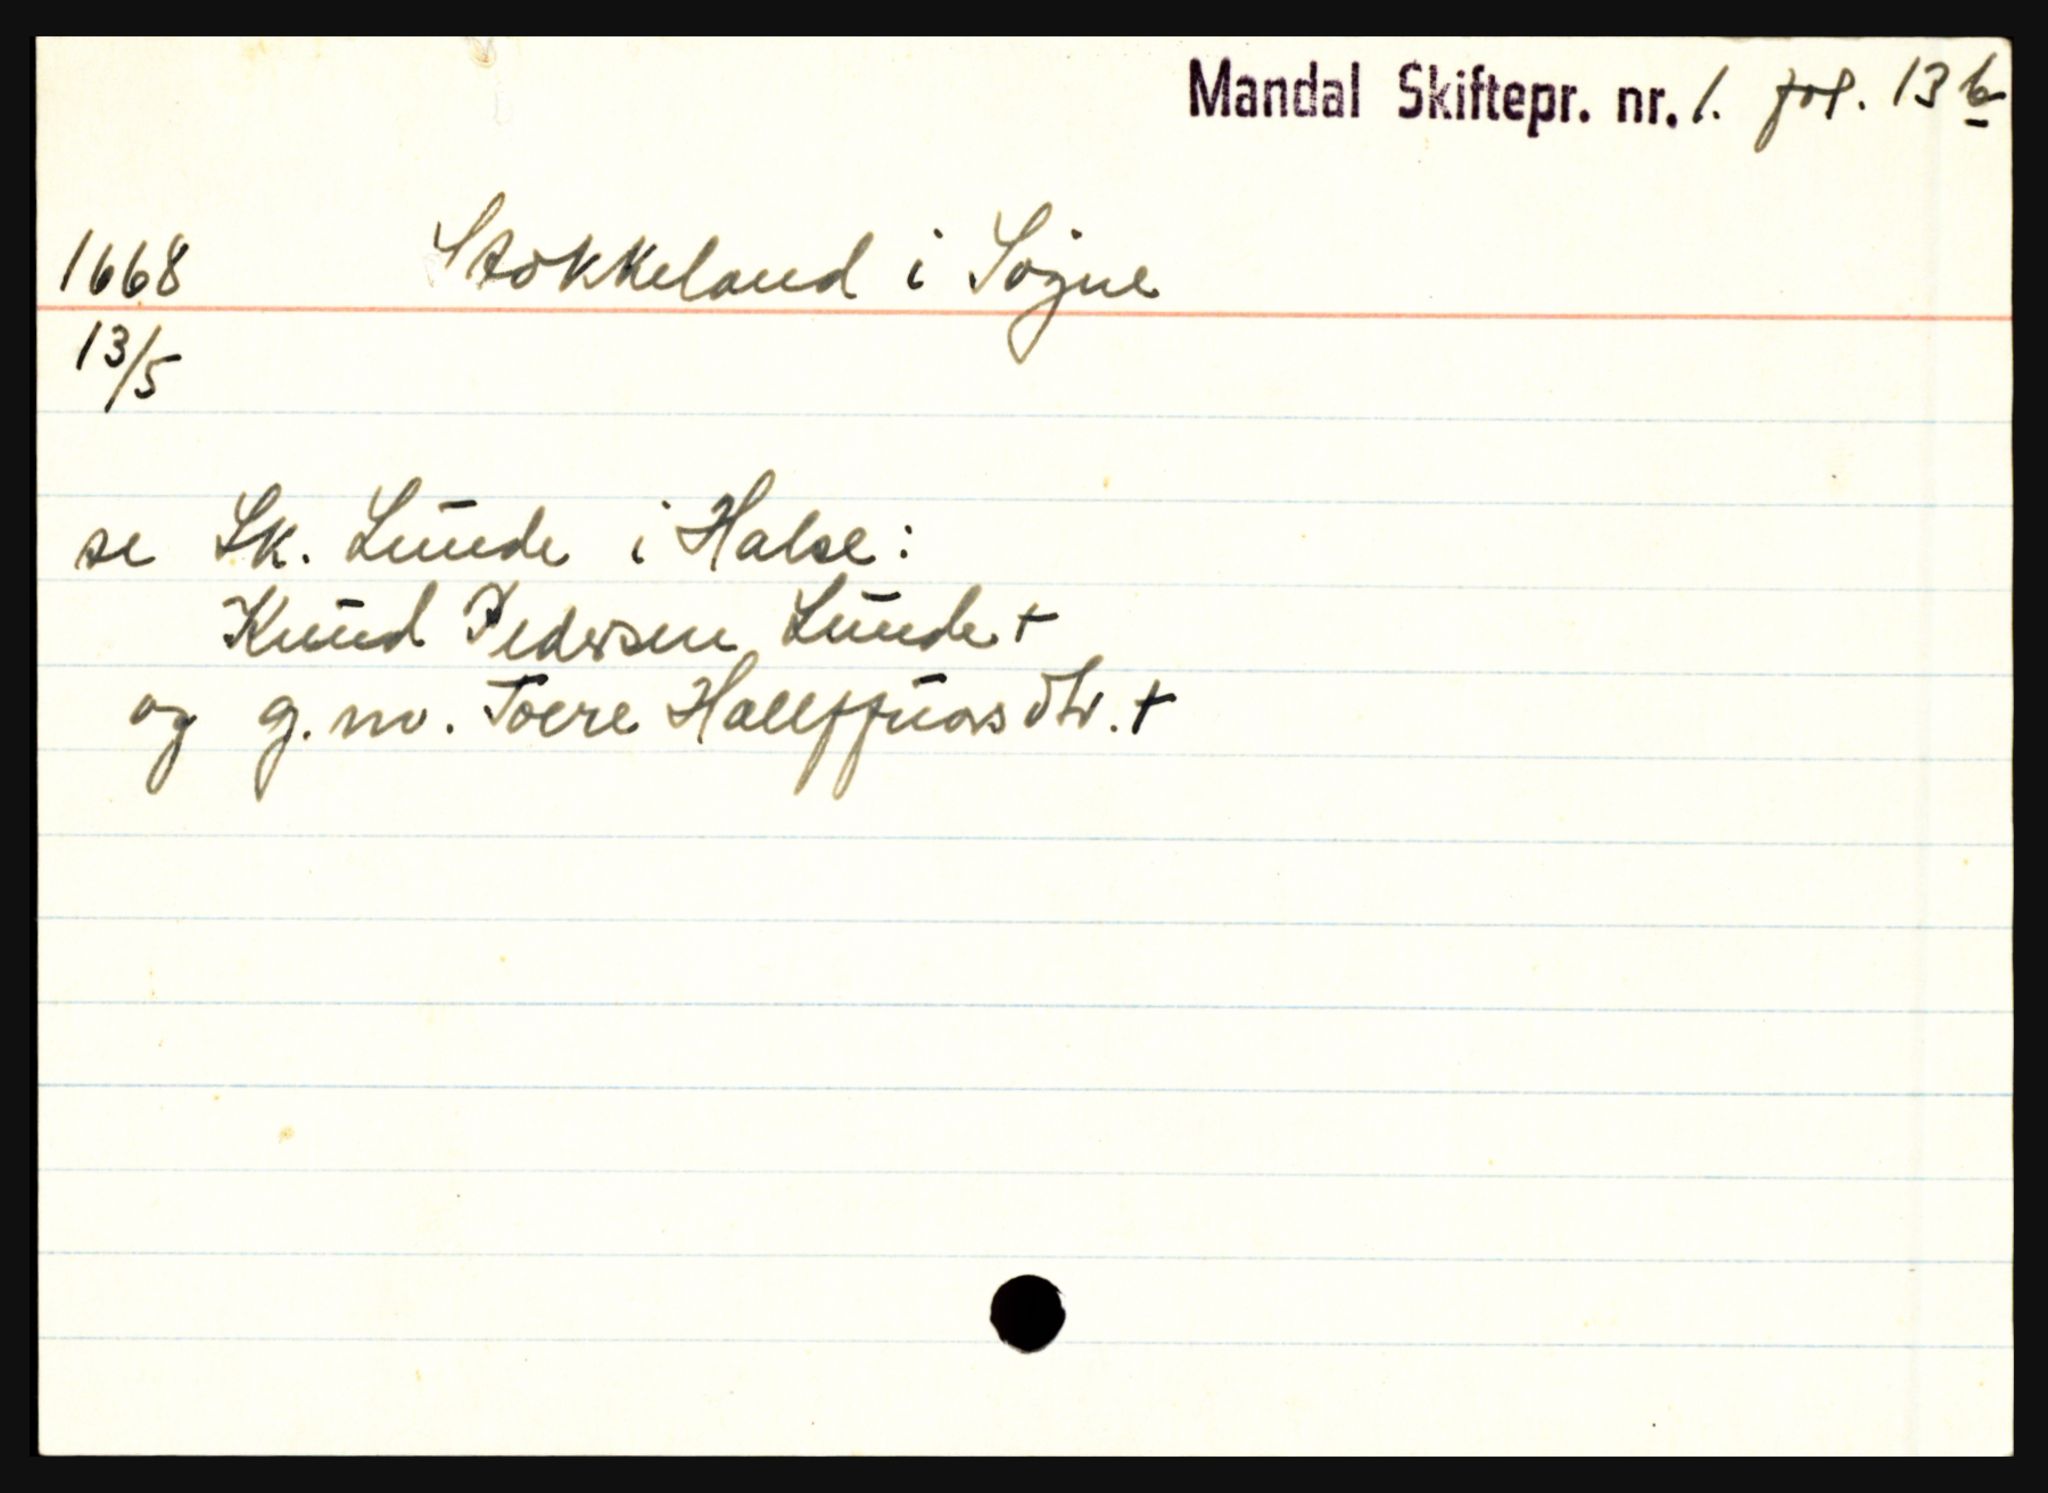 Mandal Skiftepr. nr. 1. fol. 13 b
1668 Stokkeland i Søgne
13/5
se Sk. Lunde i Halse:
Knud Pedersen Lunde +
og g. m. Toere Hallffuorsdtr. +